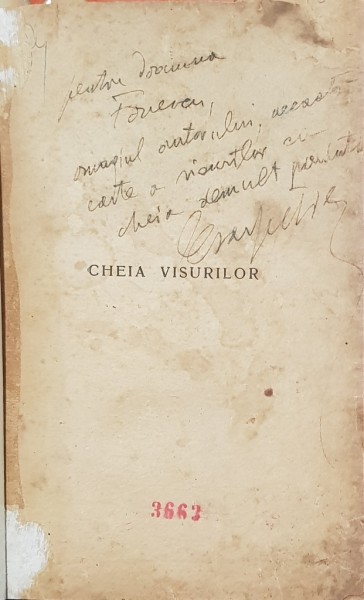 pentru doamna
omagiul autorului, această
carte a visurilor cu
cheia demult pierdută
CHEIA VISURILOR
3663